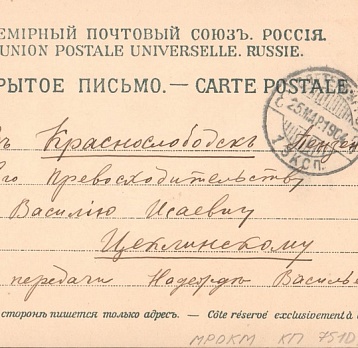 ЕМІРНЫЙ ПОЧТОВЫЙ СОЮЗЪ. РОССІЯ.
UNION POSTALE UNIVERSELLE. RUSSIE.
РЫТОЕ ПИСЬМО.— CARTE POSTALE.
С. ПЕТЕРБУРГЪ
25 МАР 1904
7 ЭКСП.
ъ Краснослободскъ Пензен
го Превосходительству
Василію Исаевичу
Цеклинскому
передачи Надеждѣ Василье
сторонѣ пишется только адресъ. — Côté réservé exclusivement à
МРОКМ КП 7510